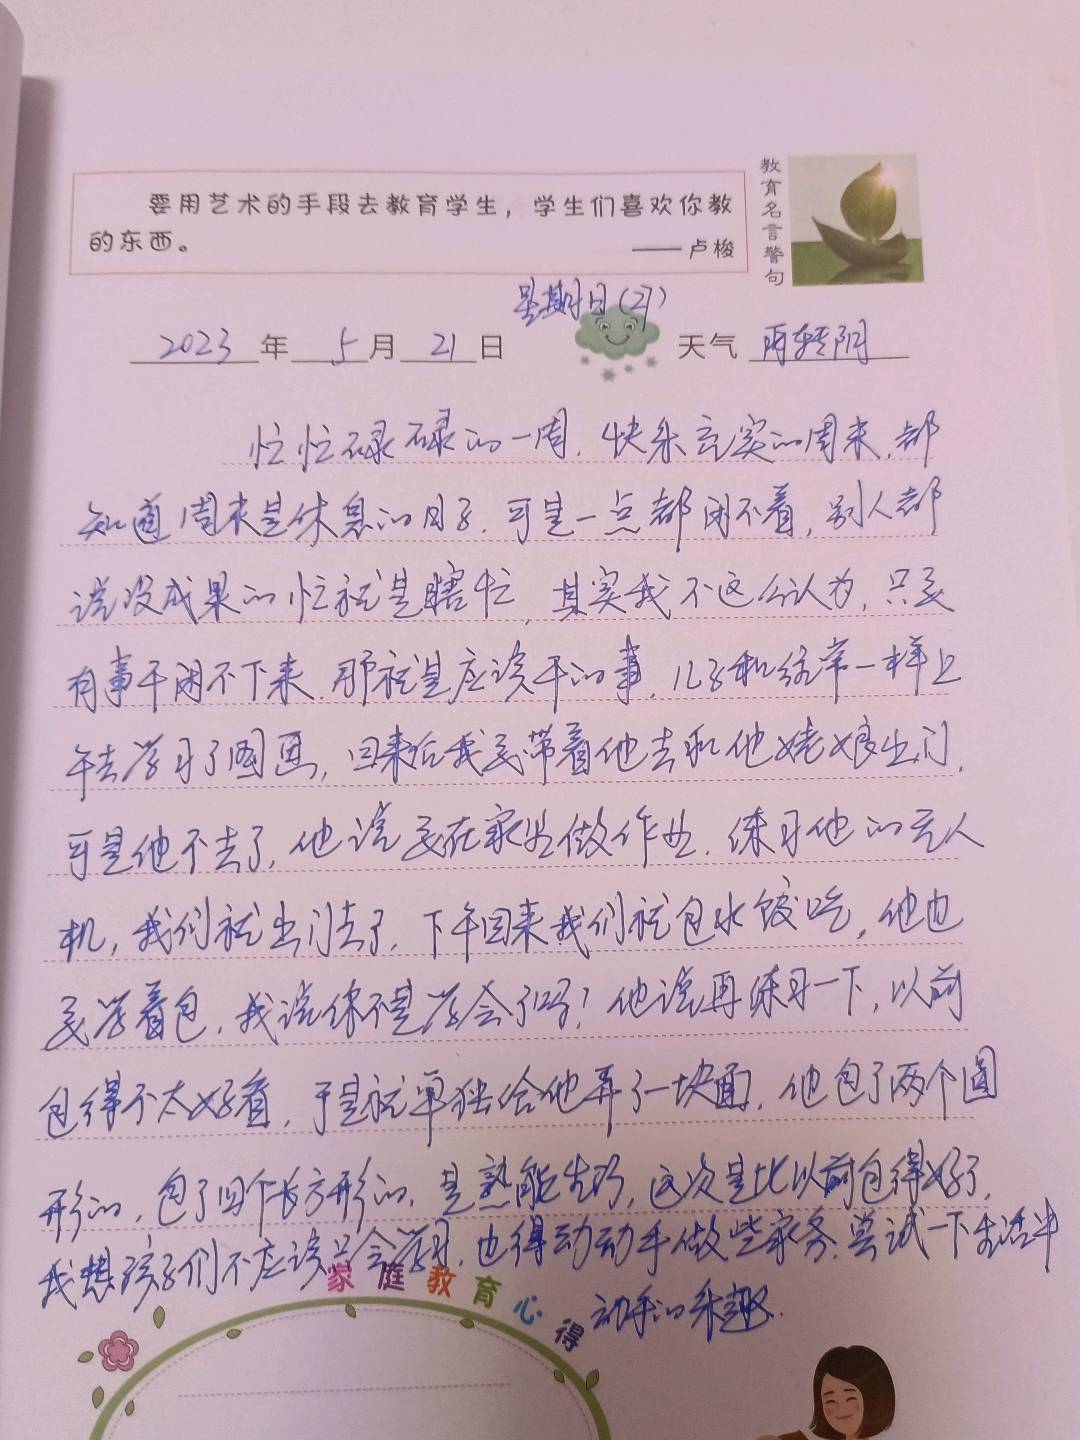 要用艺术的手段去教育学生，学生们喜欢你教
的东西。
—— 卢梭
教育名言警句
星期日(27)
2023 年 5 月 21 日 天气 雨转阴
忙忙碌碌的一周，快乐充实的周末，都
知道周末是休息的日子，可是一点都闲不着，别人都
说没成果的忙就是瞎忙，其实我不这么认为，只要
有事干闲不下来，那就是应该干的事，儿子和往常一样上
午去学习了图画，回来后我要带着他去和他姥娘出门，
可是他不去了，他说要在家里做作业，练习他的无人
机，我们就出门去了，下午回来我们就包水饺吃，他也
要学着包，我说你不是学会了吗？他说再练习一下，以前
包得不太好看，于是就单独给他弄了一块面，他包了两个圆
形的，包了四个长方形的，是熟能生巧，这次是比以前包得好了，
我想孩子们不应该只会学习，也得动动手做些家务，尝试一下生活中
动手的乐趣.
家庭教育心得